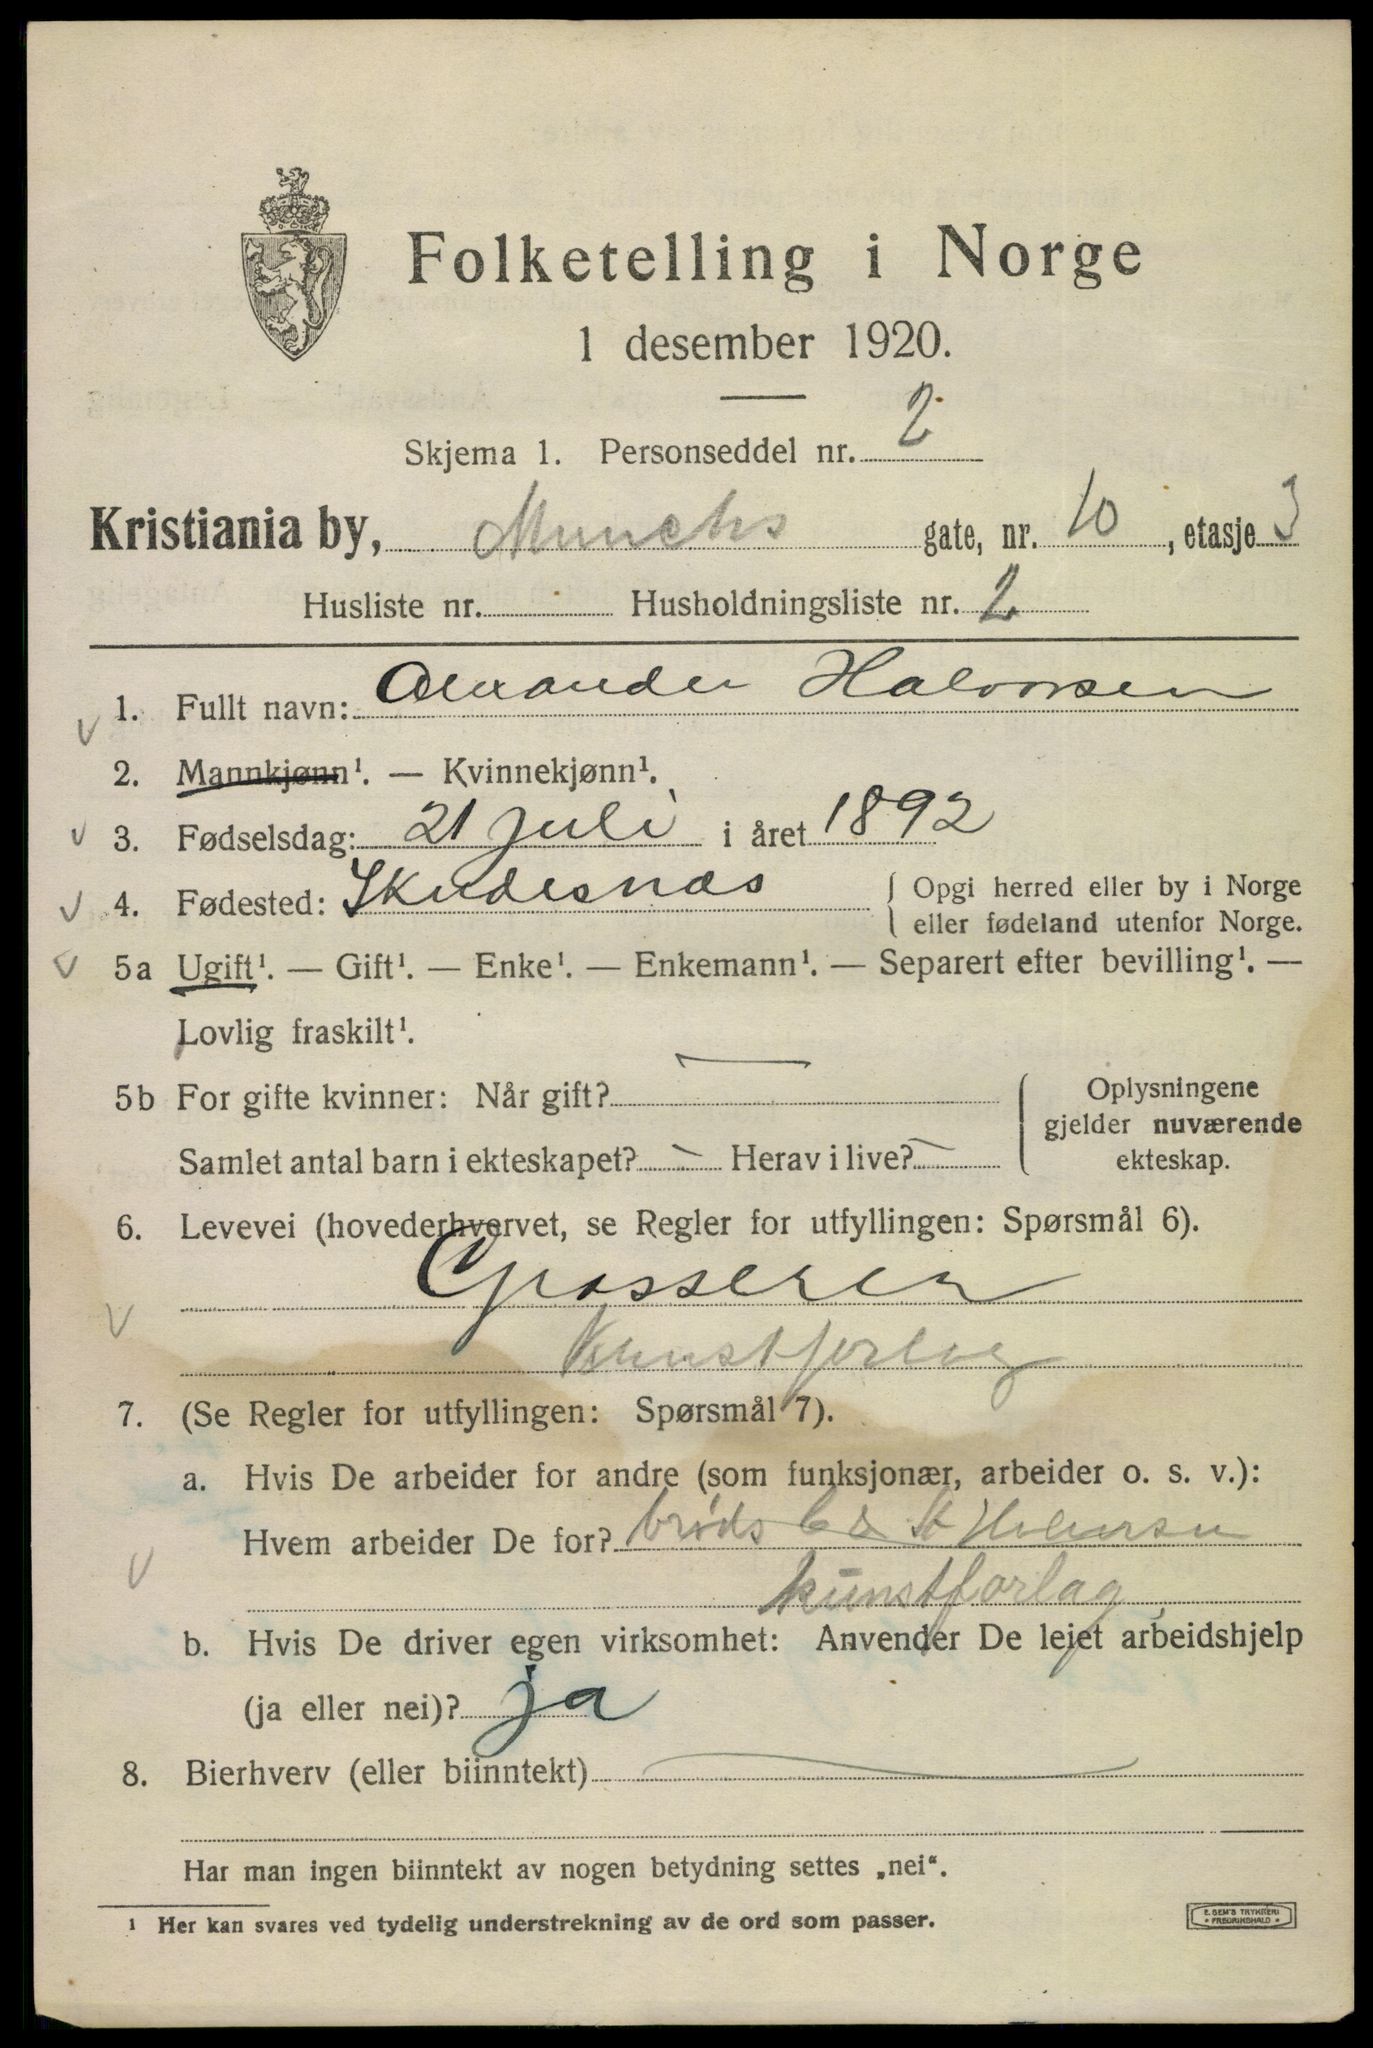 Folketelling i Norge
1 desember 1920.
Skjema 1. Personseddel nr. 2
Kristiania by, Munchs gate, nr. 10, etasje 3
Husliste nr. Husholdningsliste nr. 2
1. Fullt navn: Alexander Halvorsen
2. Mannkjønn¹. — Kvinnekjønn¹.
3. Fødselsdag: 21 juli i året 1892
4. Fødested: Skudesnæs { Opgi herred eller by i Norge
eller fødeland utenfor Norge.
5a Ugift¹. — Gift¹. — Enke¹. — Enkemann¹. — Separert efter bevilling¹. —
Lovlig fraskilt¹.
5b For gifte kvinner: Når gift? — Oplysningene
gjelder nuværende
Samlet antal barn i ekteskapet? — Herav i live? — ekteskap.
6. Levevei (hovederhvervet, se Regler for utfyllingen: Spørsmål 6).
Grosserer
Kunstforlag
7. (Se Regler for utfyllingen: Spørsmål 7).
a. Hvis De arbeider for andre (som funksjonær, arbeider o. s. v.):
Hvem arbeider De for? brødr
kunstforlag
b. Hvis De driver egen virksomhet: Anvender De leiet arbeidshjelp
(ja eller nei)? ja
8. Bierhverv (eller biinntekt) —
Har man ingen biinntekt av nogen betydning settes „nei“.
¹ Her kan svares ved tydelig understrekning av de ord som passer.
E. SEM'S TRYKKERI
* FREDRIKSHALD *